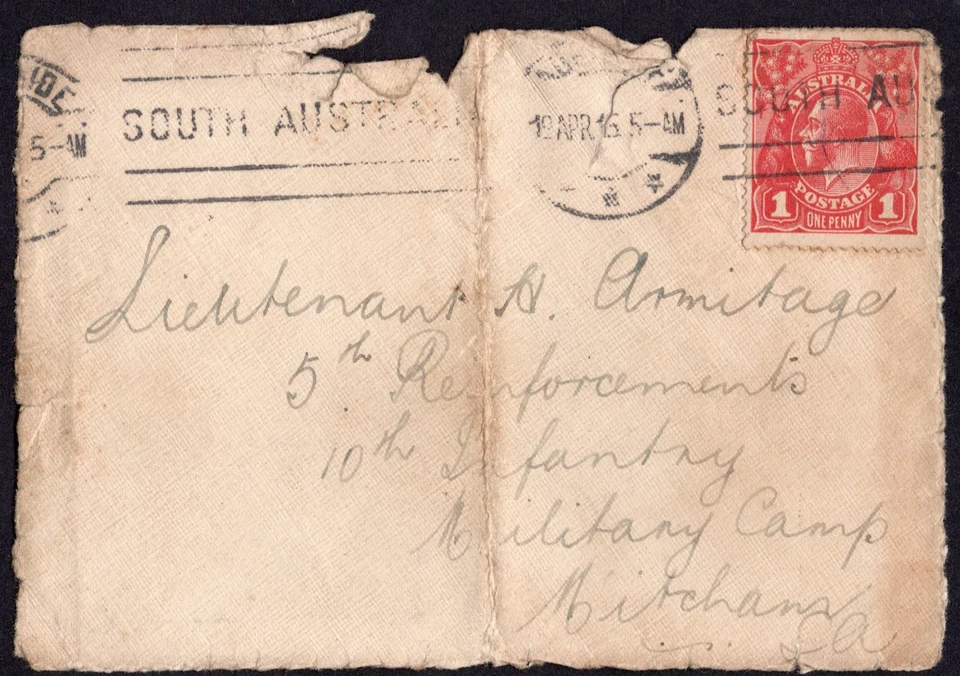 SOUTH AUSTRALIA
5-AM
19 APR. 15. 5-AM
SOUTH AUS
AUSTRALIA
POSTAGE
1 ONE PENNY 1
Lieutenant H. Armitage
5th Reinforcements
10th Infantry
Military Camp
Mitcham
SA